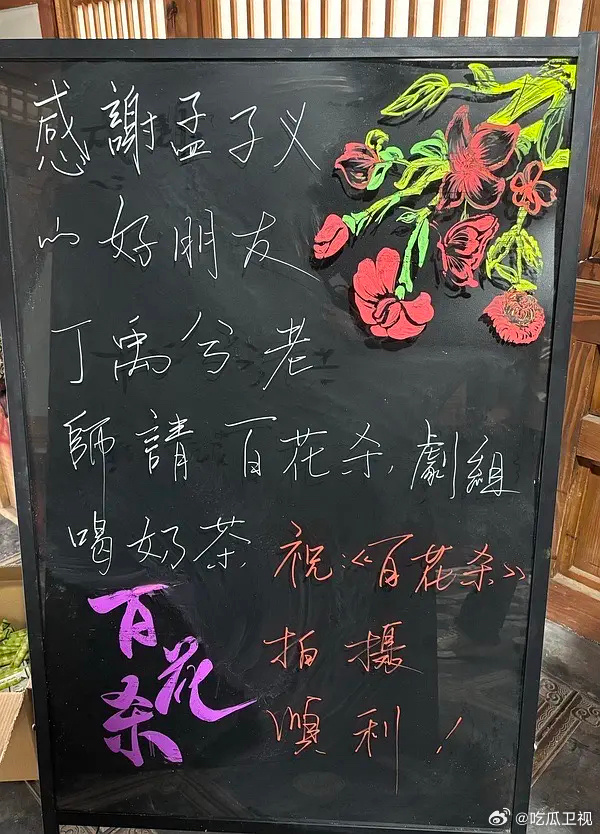 感謝孟子义
的好朋友
丁禹兮老
師請百花杀劇組
喝奶茶
祝:《百花杀》
拍攝
順利!
百花杀
@吃瓜卫视